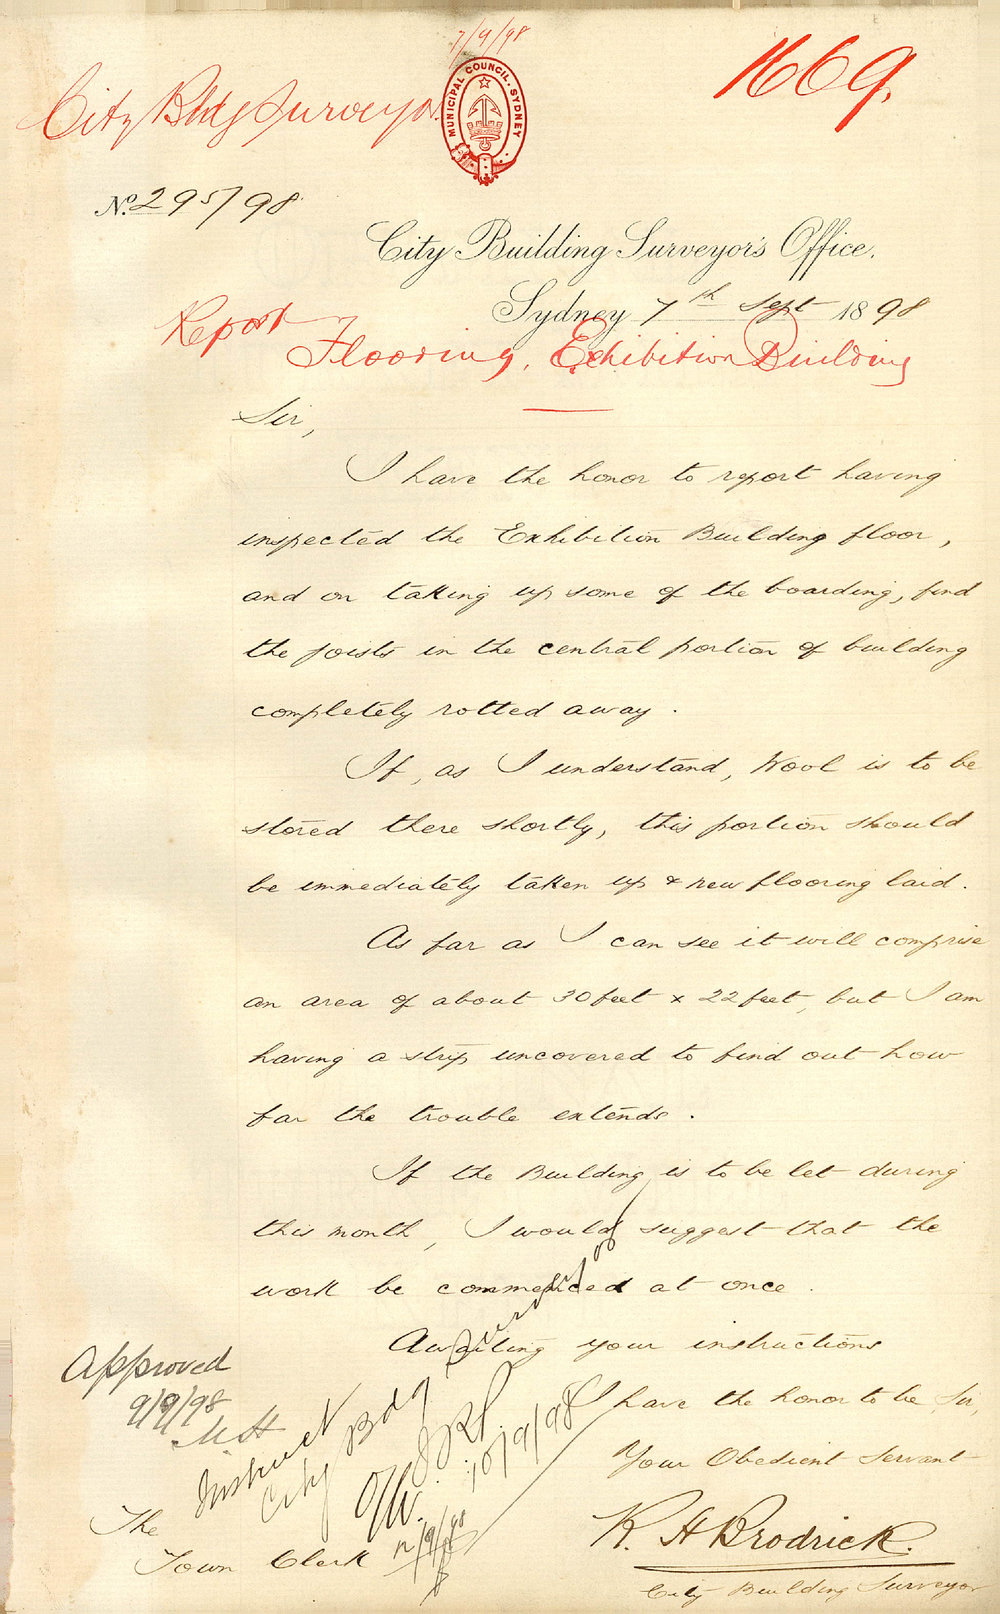 7/9/98
City Bldg Surveyor
MUNICIPAL COUNCIL. SYDNEY
1669.
No. 295/98
City Building Surveyor's Office.
Sydney 7th Sept 1898
Report
Flooring, Exhibition Building
Sir,
I have the honor to report having
inspected the Exhibition Building floor,
and on taking up some of the boarding, find
the joists in the central portion of building
completely rotted away.
If, as I understand, Wool is to be
stored there shortly, this portion should
be immediately taken up & new flooring laid.
As far as I can see it will comprise
an area of about 30 feet x 22 feet, but I am
having a strip uncovered to find out how
far the trouble extends.
If the Building is to be let during
this month, I would suggest that the
work be commenced at once.
Awaiting your instructions
I have the honor to be, Sir,
Your Obedient Servant
R. H Brodrick.
City Building Surveyor
Approved
9/9/98
Instruct
City Bdg Surveyor
10/9/98
The
Town Clerk